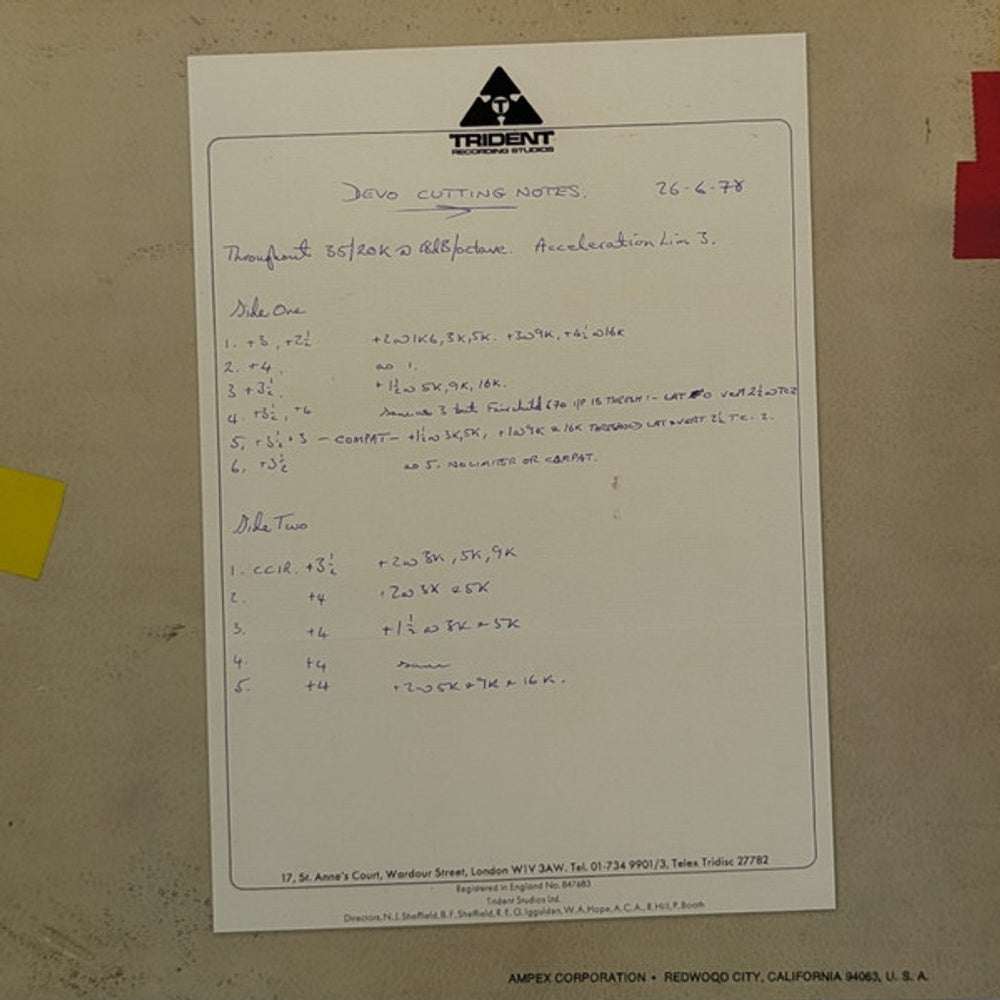 TRIDENT
RECORDING STUDIOS
DEVO CUTTING NOTES. 26-6-78
Throughout 35/20K @ 18dB/octave. Acceleration Lim 3.
Side One
1. +3, +2½ +2 @ 1K6, 3K, 5K. +3 @ 9K, +4½ @ 16K
2. +4, as 1.
3 +3½, +1½ @ 5K, 9K, 16K.
4. +3½, +6 Same as 3 but Fairchild 670 I/P 15 THRESH :- LAT 0 VERT 2½ @ TC2
5, +3½ +3 - COMPAT - +1½ @ 3K, 5K, +1 @ 9K & 16K THRESHOLD LAT & VERT 2½ TC. 2.
6, +3½ as 5. NO LIMITER OR COMPAT.
Side Two
1. CCIR. +3½ +2 @ 3K, 5K, 9K
2. +4 +2 @ 3K & 5K
3. +4 +1½ @ 3K & 5K
4. +4 same
5. +4 +2 @ 5K & 9K & 16K.
17, St. Anne's Court, Wardour Street, London W1V 3AW. Tel. 01-734 9901/3, Telex Tridisc 27782
Registered in England No. 847683
Trident Studios Ltd.
Directors, N. J. Sheffield, B. F. Sheffield, R. E. G. Iggulden, W. A. Hope, A. C. A., R. Hill, P. Booth
AMPEX CORPORATION • REDWOOD CITY, CALIFORNIA 94063, U. S. A.